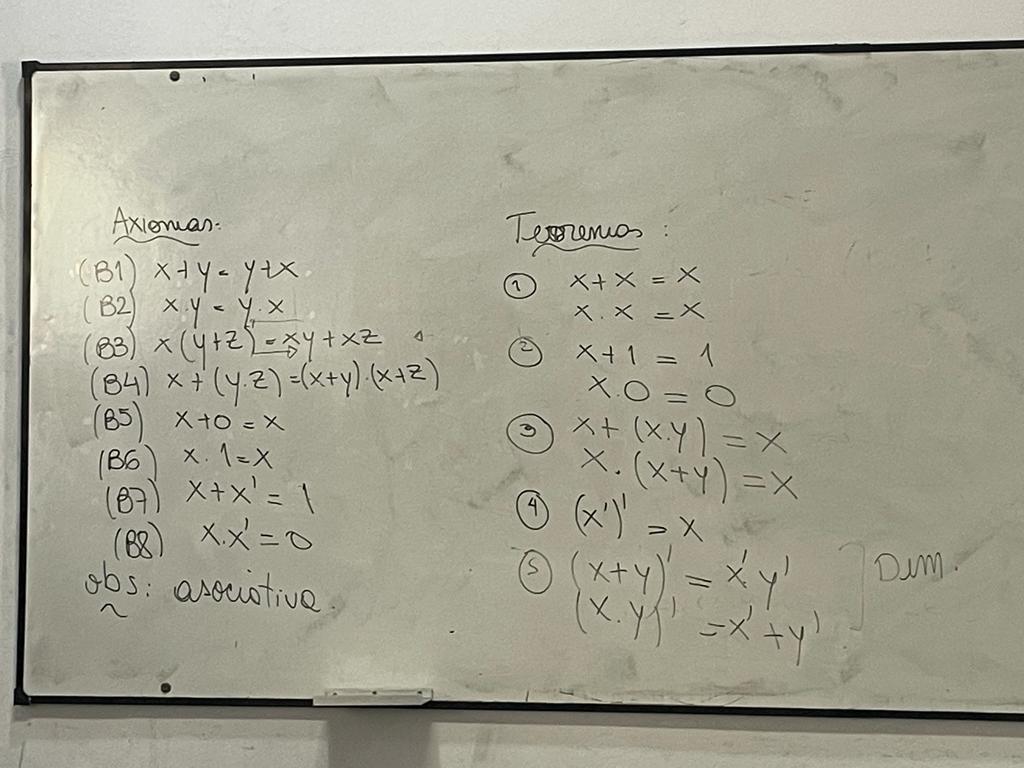 Axiomas:
(B1) x+y = y+x
(B2) x.y = y.x
(B3) x(y+z) = xy+xz
(B4) x+(y.z) = (x+y).(x+z)
(B5) x+0 = x
(B6) x.1 = x
(B7) x+x' = 1
(B8) x.x' = 0
obs: asociativa.
Teoremas:
① x+x = x
x.x = x
② x+1 = 1
x.0 = 0
③ x+(x.y) = x
x.(x+y) = x
④ (x')' = x
⑤ (x+y)' = x'.y'
(x.y)' = x'+y'
Dem.